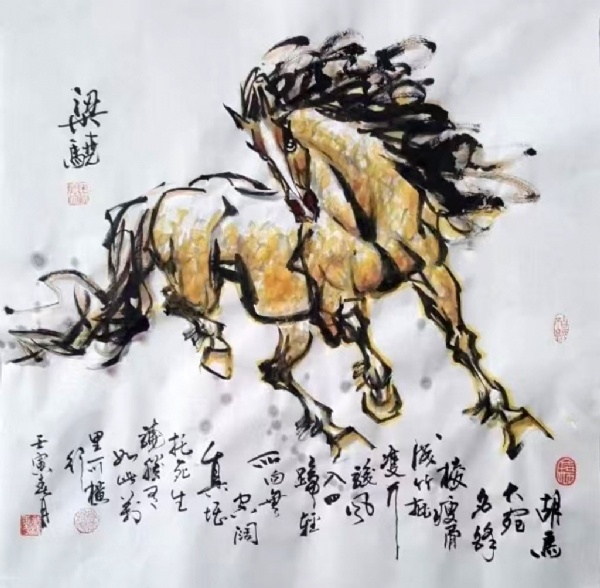 胡馬
大宛
名鋒
棱瘦骨
成竹批
雙耳
峻風
入四
蹄輕
所向無
空闊
真堪
托死生
驍騰有
如此萬
里可橫
行
壬寅春月